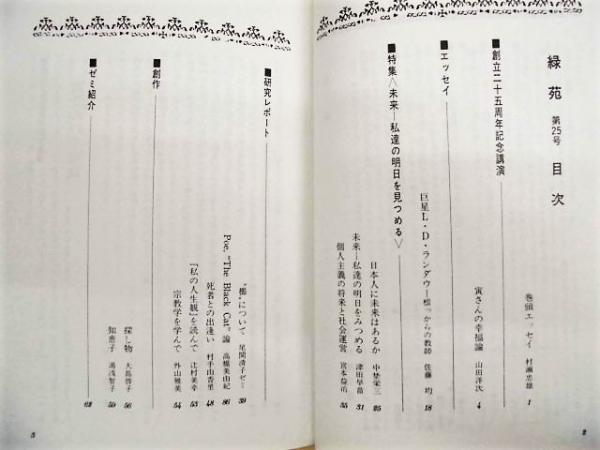 緑苑 第25号 目次
巻頭エッセイ 村瀬忠雄 1
■創立二十五周年記念講演
寅さんの幸福論 山田洋次 4
■エッセイ
巨星L・D・ランダウー模〝からの教師 佐藤 均 18
■特集〈未来―私達の明日を見つめる〉
日本人に未来はあるか 中埜栄三 25
未来―私達の明日をみつめる 津田早苗 31
個人主義の将来と社会運営 宮本益治 35
2
■研究レポート
〝櫛〟について 尾関清子ゼミ 39
Poe, "The Black Cat" 論 高橋美由紀
死者との出逢い 村手山香里 48
『私の人生観』を読んで 辻村美幸 53
宗教学を学んで 外山雅美 54
■創作
探し物 大島啓子 56
知恵子 湯浅智子 59
■ゼミ紹介
62
3